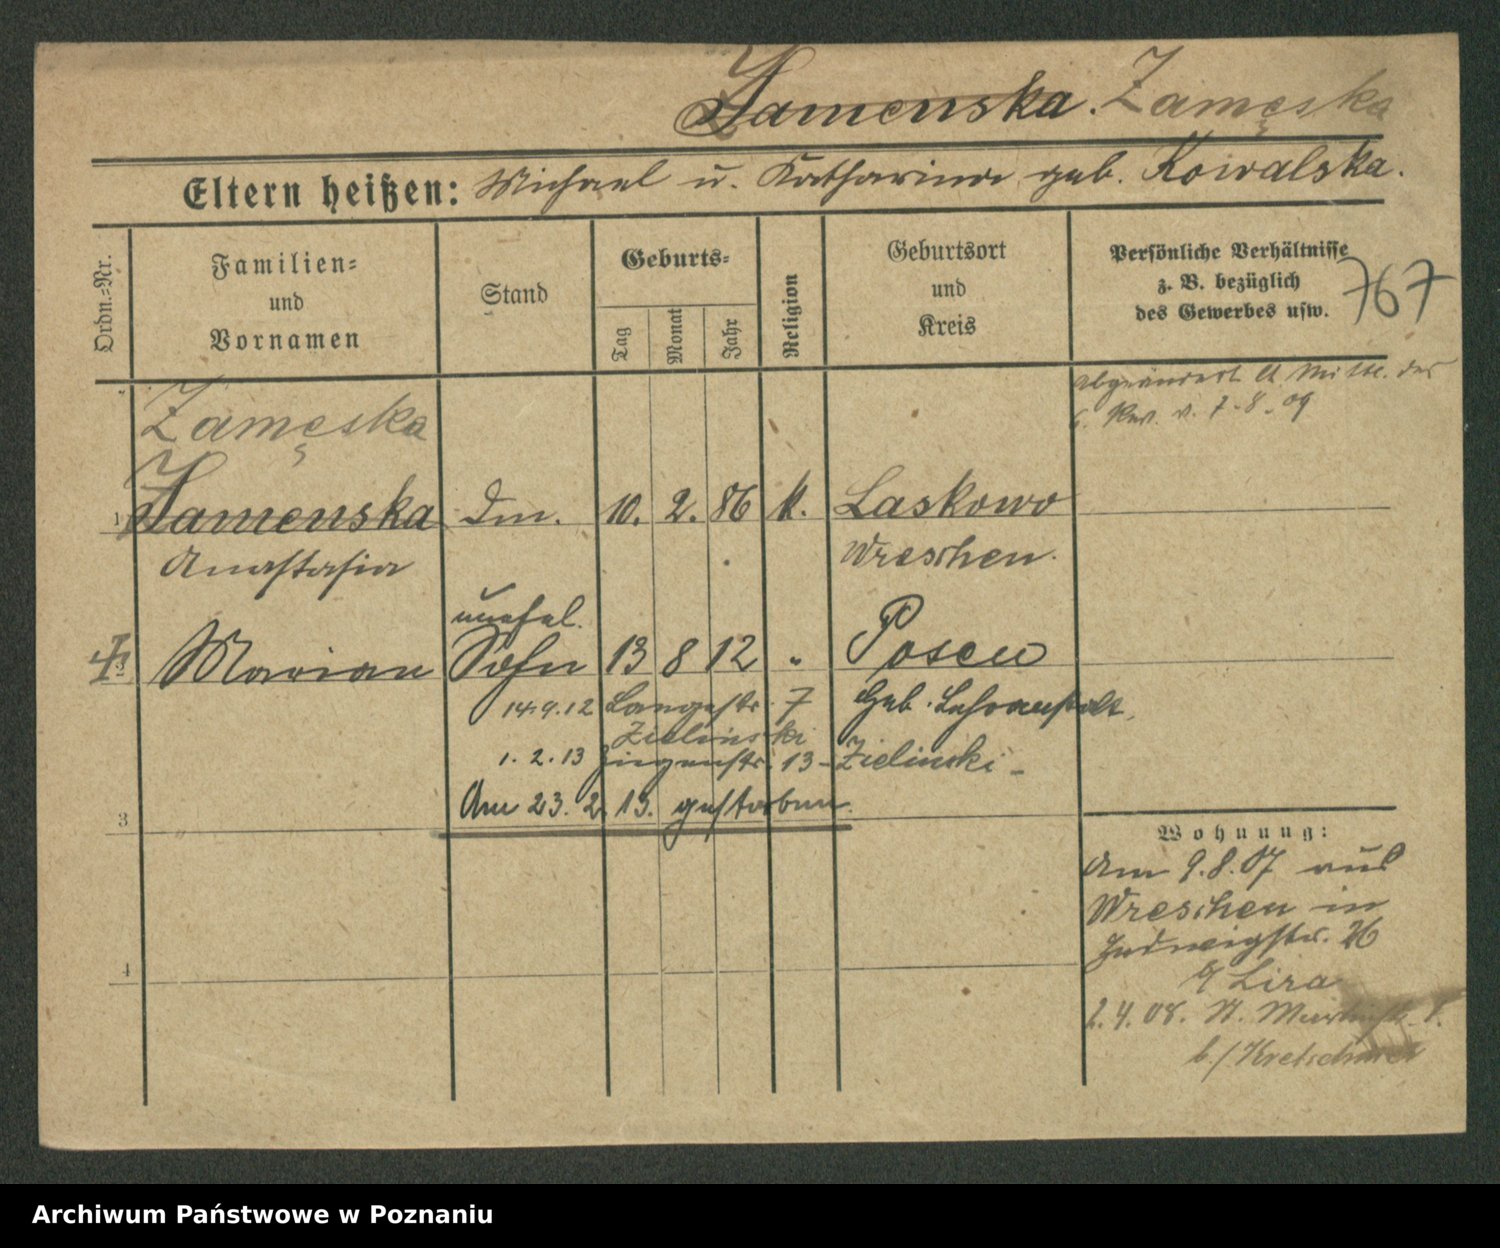 Zamenska. Zamęska
Eltern heißen: Michael u. Katharina geb. Kowalska.
Ordn.-Nr.
Familien-
und
Vornamen
Stand
Geburts-
Tag
Monat
Jahr
Religion
Geburtsort
und
Kreis
Persönliche Verhältnisse
z. B. bezüglich
des Gewerbes usw.
767
abgeändert lt. Mitt. des
6. Rev. v. 7.8.09
Zamęska
1 Zamenska Dm. 10. 2. 86 k. Laskowo
Anastasia Wreschen.
unehel.
2 Marian Sohn 13 8 12 " Posen
14.9.12 Langestr. 7 Heb. Lehranstalt.
Zielinski
1. 2. 13 Ziegenstr. 13 - Zielinski -
Am 23. 2. 13. gestorben.
3
4
Wohnung:
Am 9.8.07 aus
Wreschen in
Hedwigstr. 26
b/ Lira
2.4.08. St. Martinstr.
b./ Kretschmer